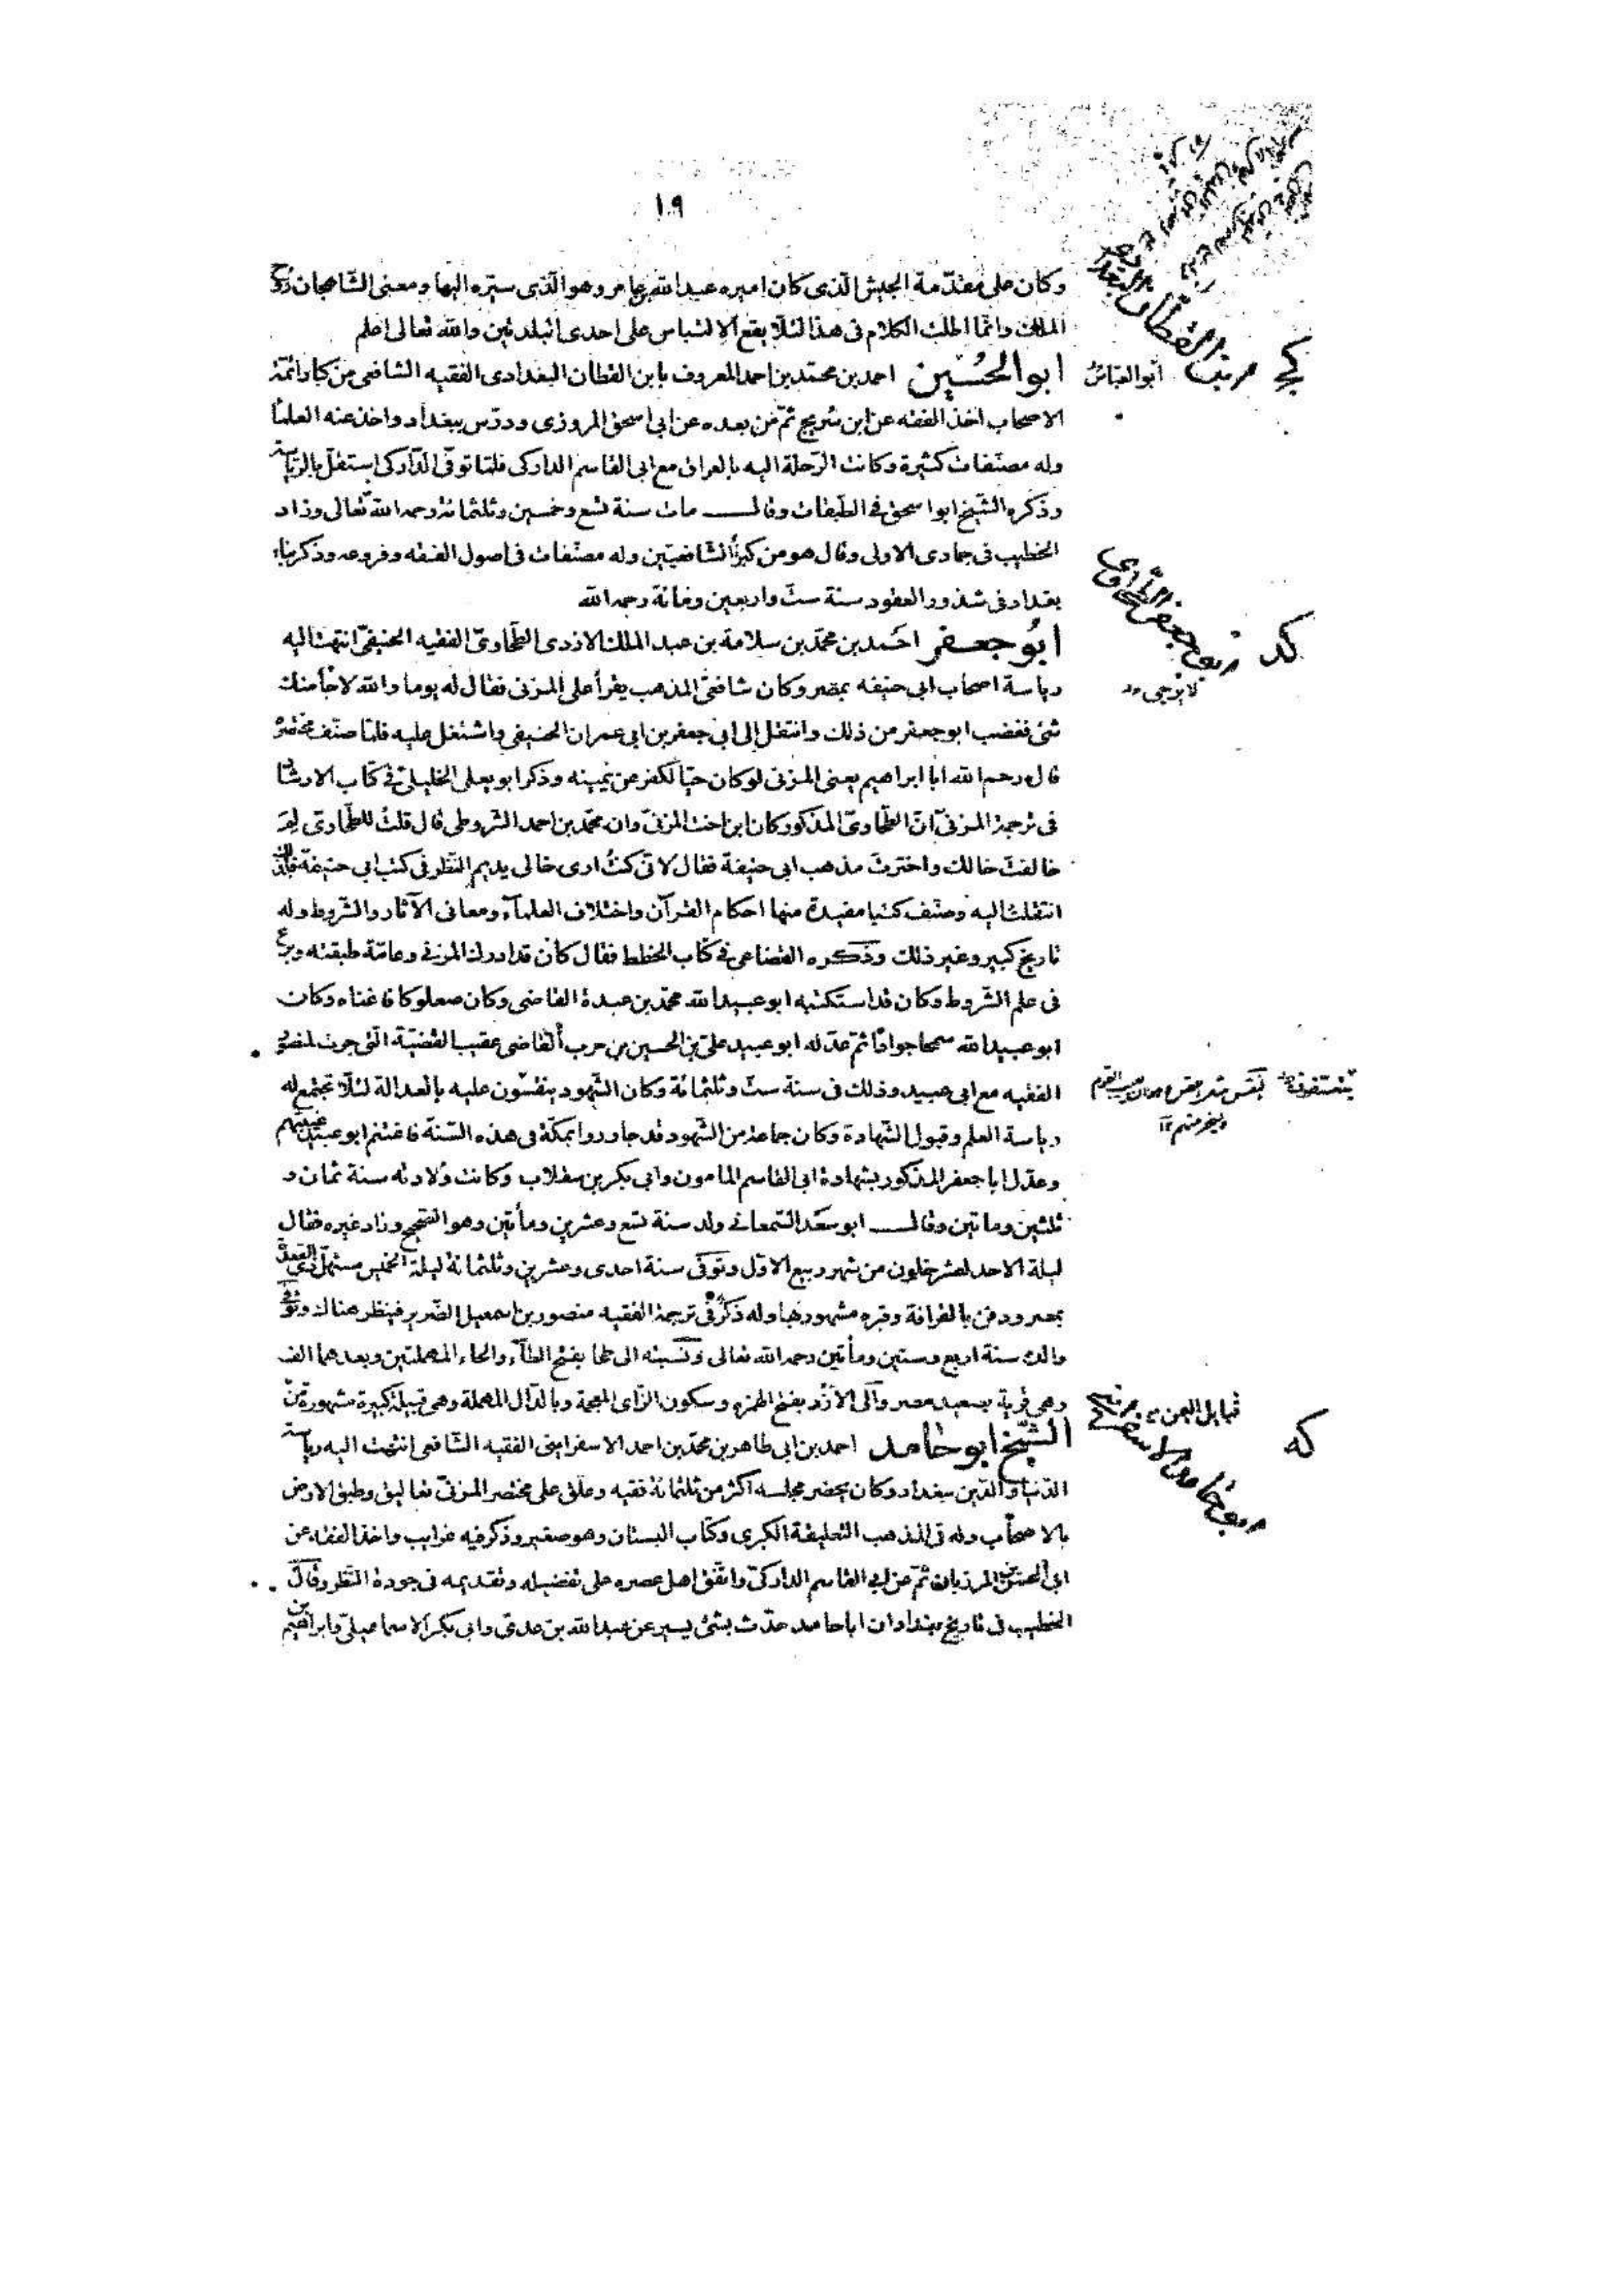 ١٩
وكان على مقدّمة الجيش الّذى كان اميره عبدالله بن عامر وهو الّذى سيّره اليها ومعنى الشّاهجان روح
الملك وانّما اطلت الكلام فى هذا لئلّا يقع الالتباس على احدى البلدتين والله تعالى اعلم
ابوالحُسَين احمد بن محمّد بن احمد المعروف بابن القطان البغدادى الفقيه الشافعى من كبار ائمّة
ابوالعبّاس
الاصحاب اخذ الفقه عن ابن سُريج ثمّ من بعده عن ابى اسحق المروزى ودرّس ببغداد واخذ عنه العلمآ
وله مصنّفات كثيرة وكانت الرّحلة اليه بالعراق مع ابى القاسم الداركى فلمّا توفّى الدّاركى استقلّ بالرّياسة
وذكره الشّيخ ابواسحق فى الطّبقات وقال مات سنة تسع وخمسين وثلثمائة رحمه الله تعالى وزاد
الخطيب فى جمادى الاولى وقال هو من كبرآ الشّافعيّين وله مصنّفات فى اصول الفقه وفروعه وذكر بناء
بغداد فى شذور العقود سنة ستّ واربعين ومائة رحمه الله
ابُو جعفر احَمد بن محمّد بن سلامة بن عبد الملك الازدى الطّحاوىّ الفقيه الحنيفىّ انتهت اليه
كد
رياسة اصحاب ابى حنيفه بمصر وكان شافعىّ المذهب يقرأ على المزنى فقال له يوما والله لا جآ منك
شئ فغضب ابو جعفر من ذلك وانتقل إلى ابى جعفر بن ابى عمران الحنيفى واشتغل عليه فلمّا صنّف مختصره
قال رحم الله ابا ابراهيم يعنى المزنى لو كان حيّا لكفر عن يمينه وذكر ابو يعلى الخليلىّ فى كتاب الارشاد
فى ترجمة المزنىّ انّ الطّحاوىّ المذكور كان ابن اخت المزنىّ وان محمّد بن احمد الشروطى قال قلتُ للطّحاوىّ لِمَ
خالفت خالك واخترت مذهب ابى حنيفة فقال لانّى كنتُ ارى خالى يديم النّظر فى كتب ابى حنيفة فلذلك
انتقلتُ اليه وصنّف كتبا مفيدة منها احكام القرآن واختلاف العلمآء ومعانى الآثار والشّروط وله
تاريخ كبير وغير ذلك وذكره القضاعى فى كتاب الخطط فقال كان قد ادرك المزنى وعامّة طبقته وبرع
فى علم الشّروط وكان قد استكتبه ابو عبيدالله محمّد بن عبدة القاضى وكان صعلوكا فاغناه وكان
ابو عبيدالله سمحا جوادًا ثمّ عدّله ابو عبيد علىّ بن الحسين بن حرب القاضى عقيب القضيّة الّتى جرت لمنصور
الفقيه مع ابى عبيد وذلك فى سنة ستّ وثلثمائة وكان الشّهود ينفسون عليه بالعدالة لئلّا تجتمع له
رياسة العلم وقبول الشّهادة وكان جماعة من الشّهود قد جاوروا بمكّة فى هذه السّنة فاغتنم ابو عبيد غيبتهم
وعدّل ابا جعفر المذكور بشهادة ابى القاسم المامون وابى بكر بن سقلاب وكانت ولادته سنة ثمان و
ثلثين وماتين وقال ابو سَعَد السّمعانى ولد سنة تسع وعشرين ومأتين وهو الصّحيح وزاد غيره فقال
ليلة الاحد لعشر خلون من شهر ربيع الاوّل وتوفّى سنة احدى وعشرين وثلثمائة ليلة الخميس مستهلّ ذى القعدة
بمصر ودفن بالقرافة وقبره مشهور بها وله ذكرٌ فى ترجمة الفقيه منصور بن اسمعيل الضّرير فينظر هناك وتوفّى
والده سنة اربع وستين ومأتين رحمه الله تعالى ونسبته الى طحا بفتح الطآء والحاء المهملتين وبعدهما الف
وهى قرية بصعيد مصر والى الازْد بفتح الهمزه وسكون الزّاى المعجمة وبالدّال المهملة وهى قبيلة كبيرة مشهورة من
قبايل اليمن
الشّيخ ابو حامد احمد بن ابى طاهر بن محمّد بن احمد الاسفراينى الفقيه الشّافعى انتهت اليه رياسة
كه
الدّنيا والدّين ببغداد وكان يحضر مجلسه اكثر من ثلثمائة فقيه وعلّق على مختصر المزنىّ تعاليق وطبق الارض
بالاصحاب وله فى المذهب التعليقة الكبرى وكتاب البستان وهو صغير وذكر فيه غرايب واخذ الفقه عن
ابى الحسن بن المرزبان ثمّ عن ابى القاسم الداركىّ واتّفق اهل عصره على تفضيله وتقديمه فى جودة النّظر وقال
الخطيب فى تاريخ بغداد ان ابا حامد حدّث بشئ يسير عن عبدالله بن عدىّ وابى بكر الاسماعيلىّ وابراهيم بن